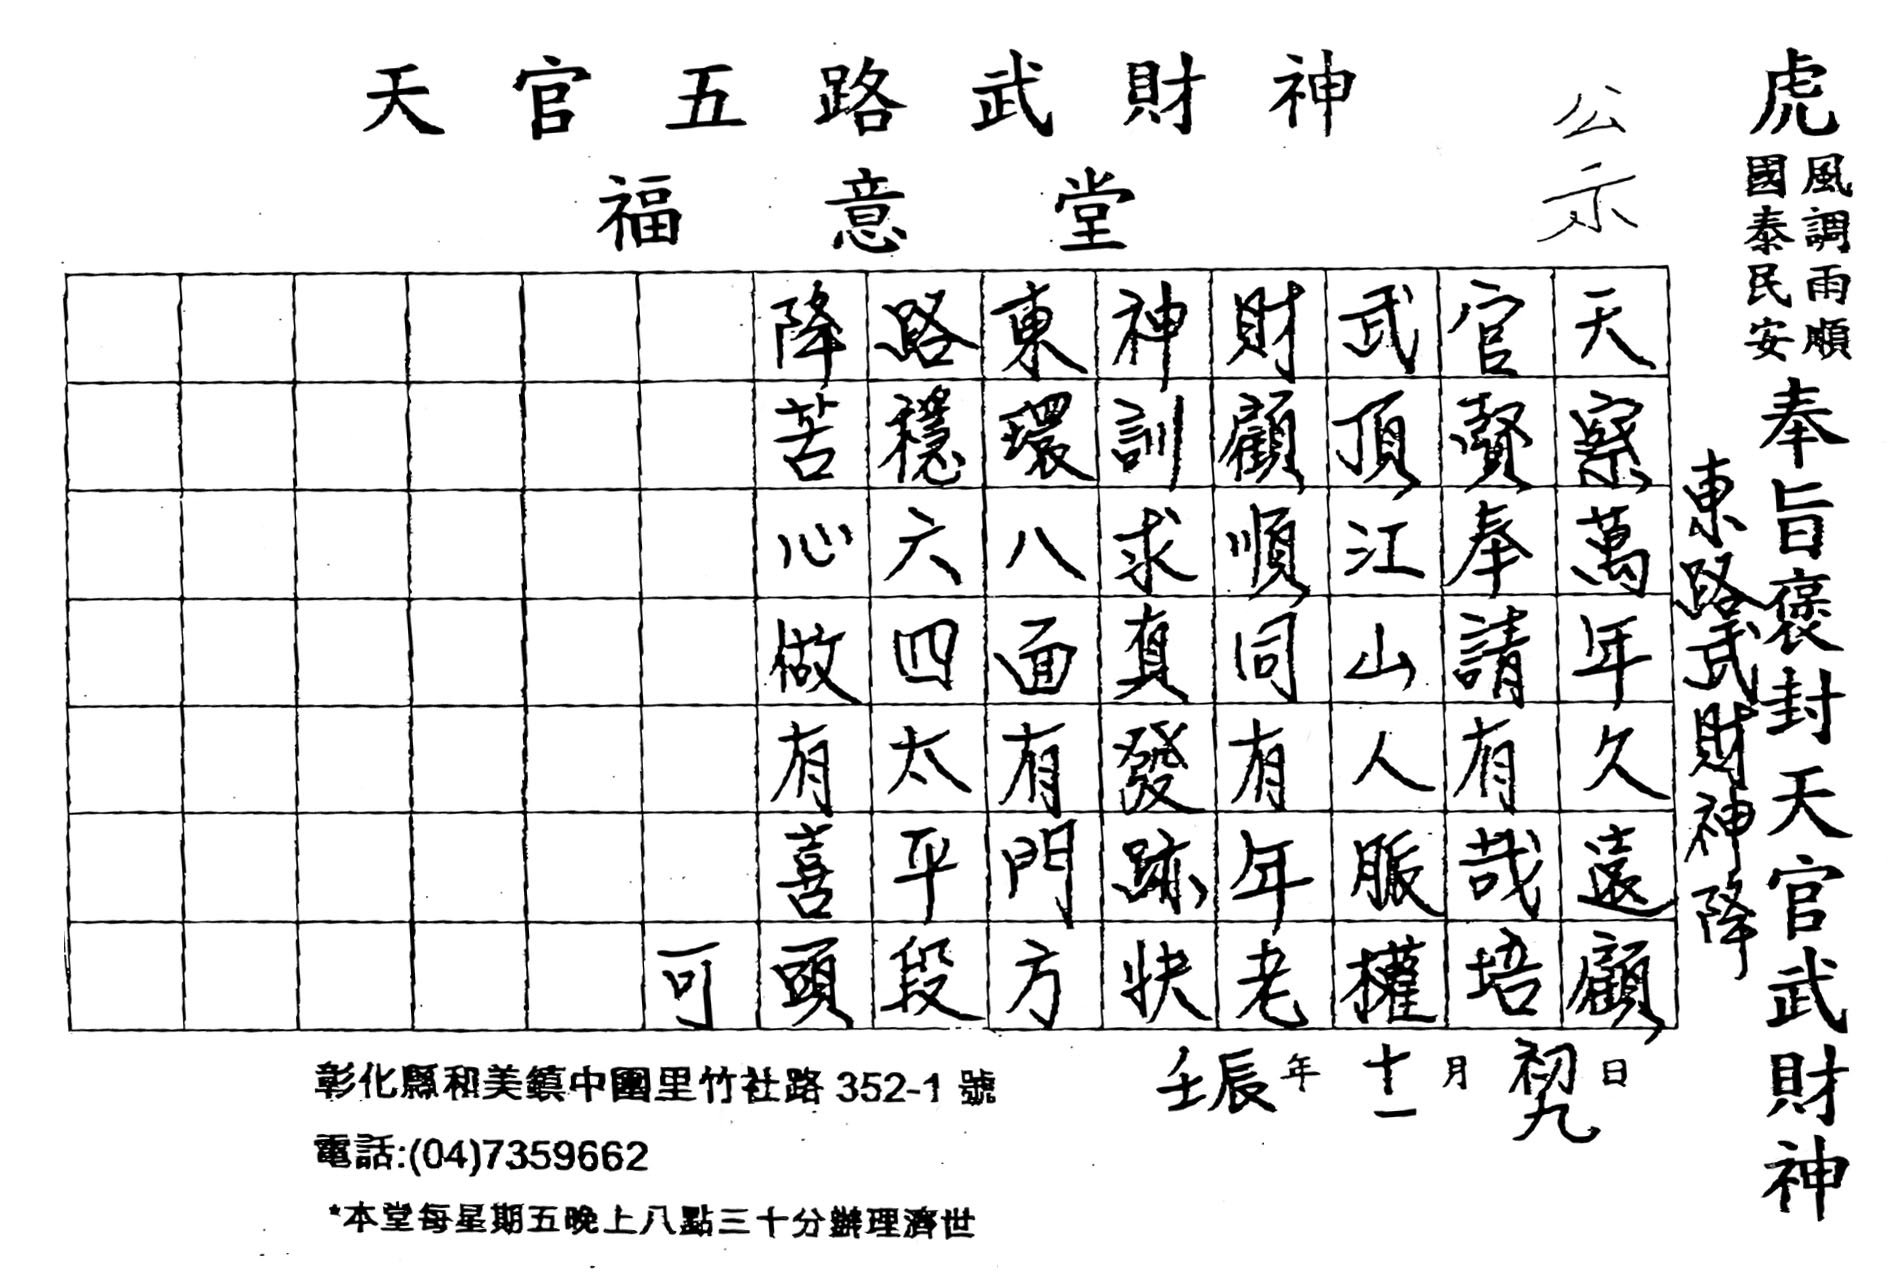 天官五路武財神
福意堂
公示
虎
風調雨順
國泰民安
奉旨褒封天官武財神
東路武財神降
天察萬年久遠顧
官賢奉請有哉培
武頂江山人脈權
財顧順同有年老
神訓求真發跡狀
東環八面有門方
路穩六四太平段
降苦心做有喜頭
可
壬辰年十一月初九日
彰化縣和美鎮中圍里竹社路 352-1 號
電話:(04)7359662
*本堂每星期五晚上八點三十分辦理濟世